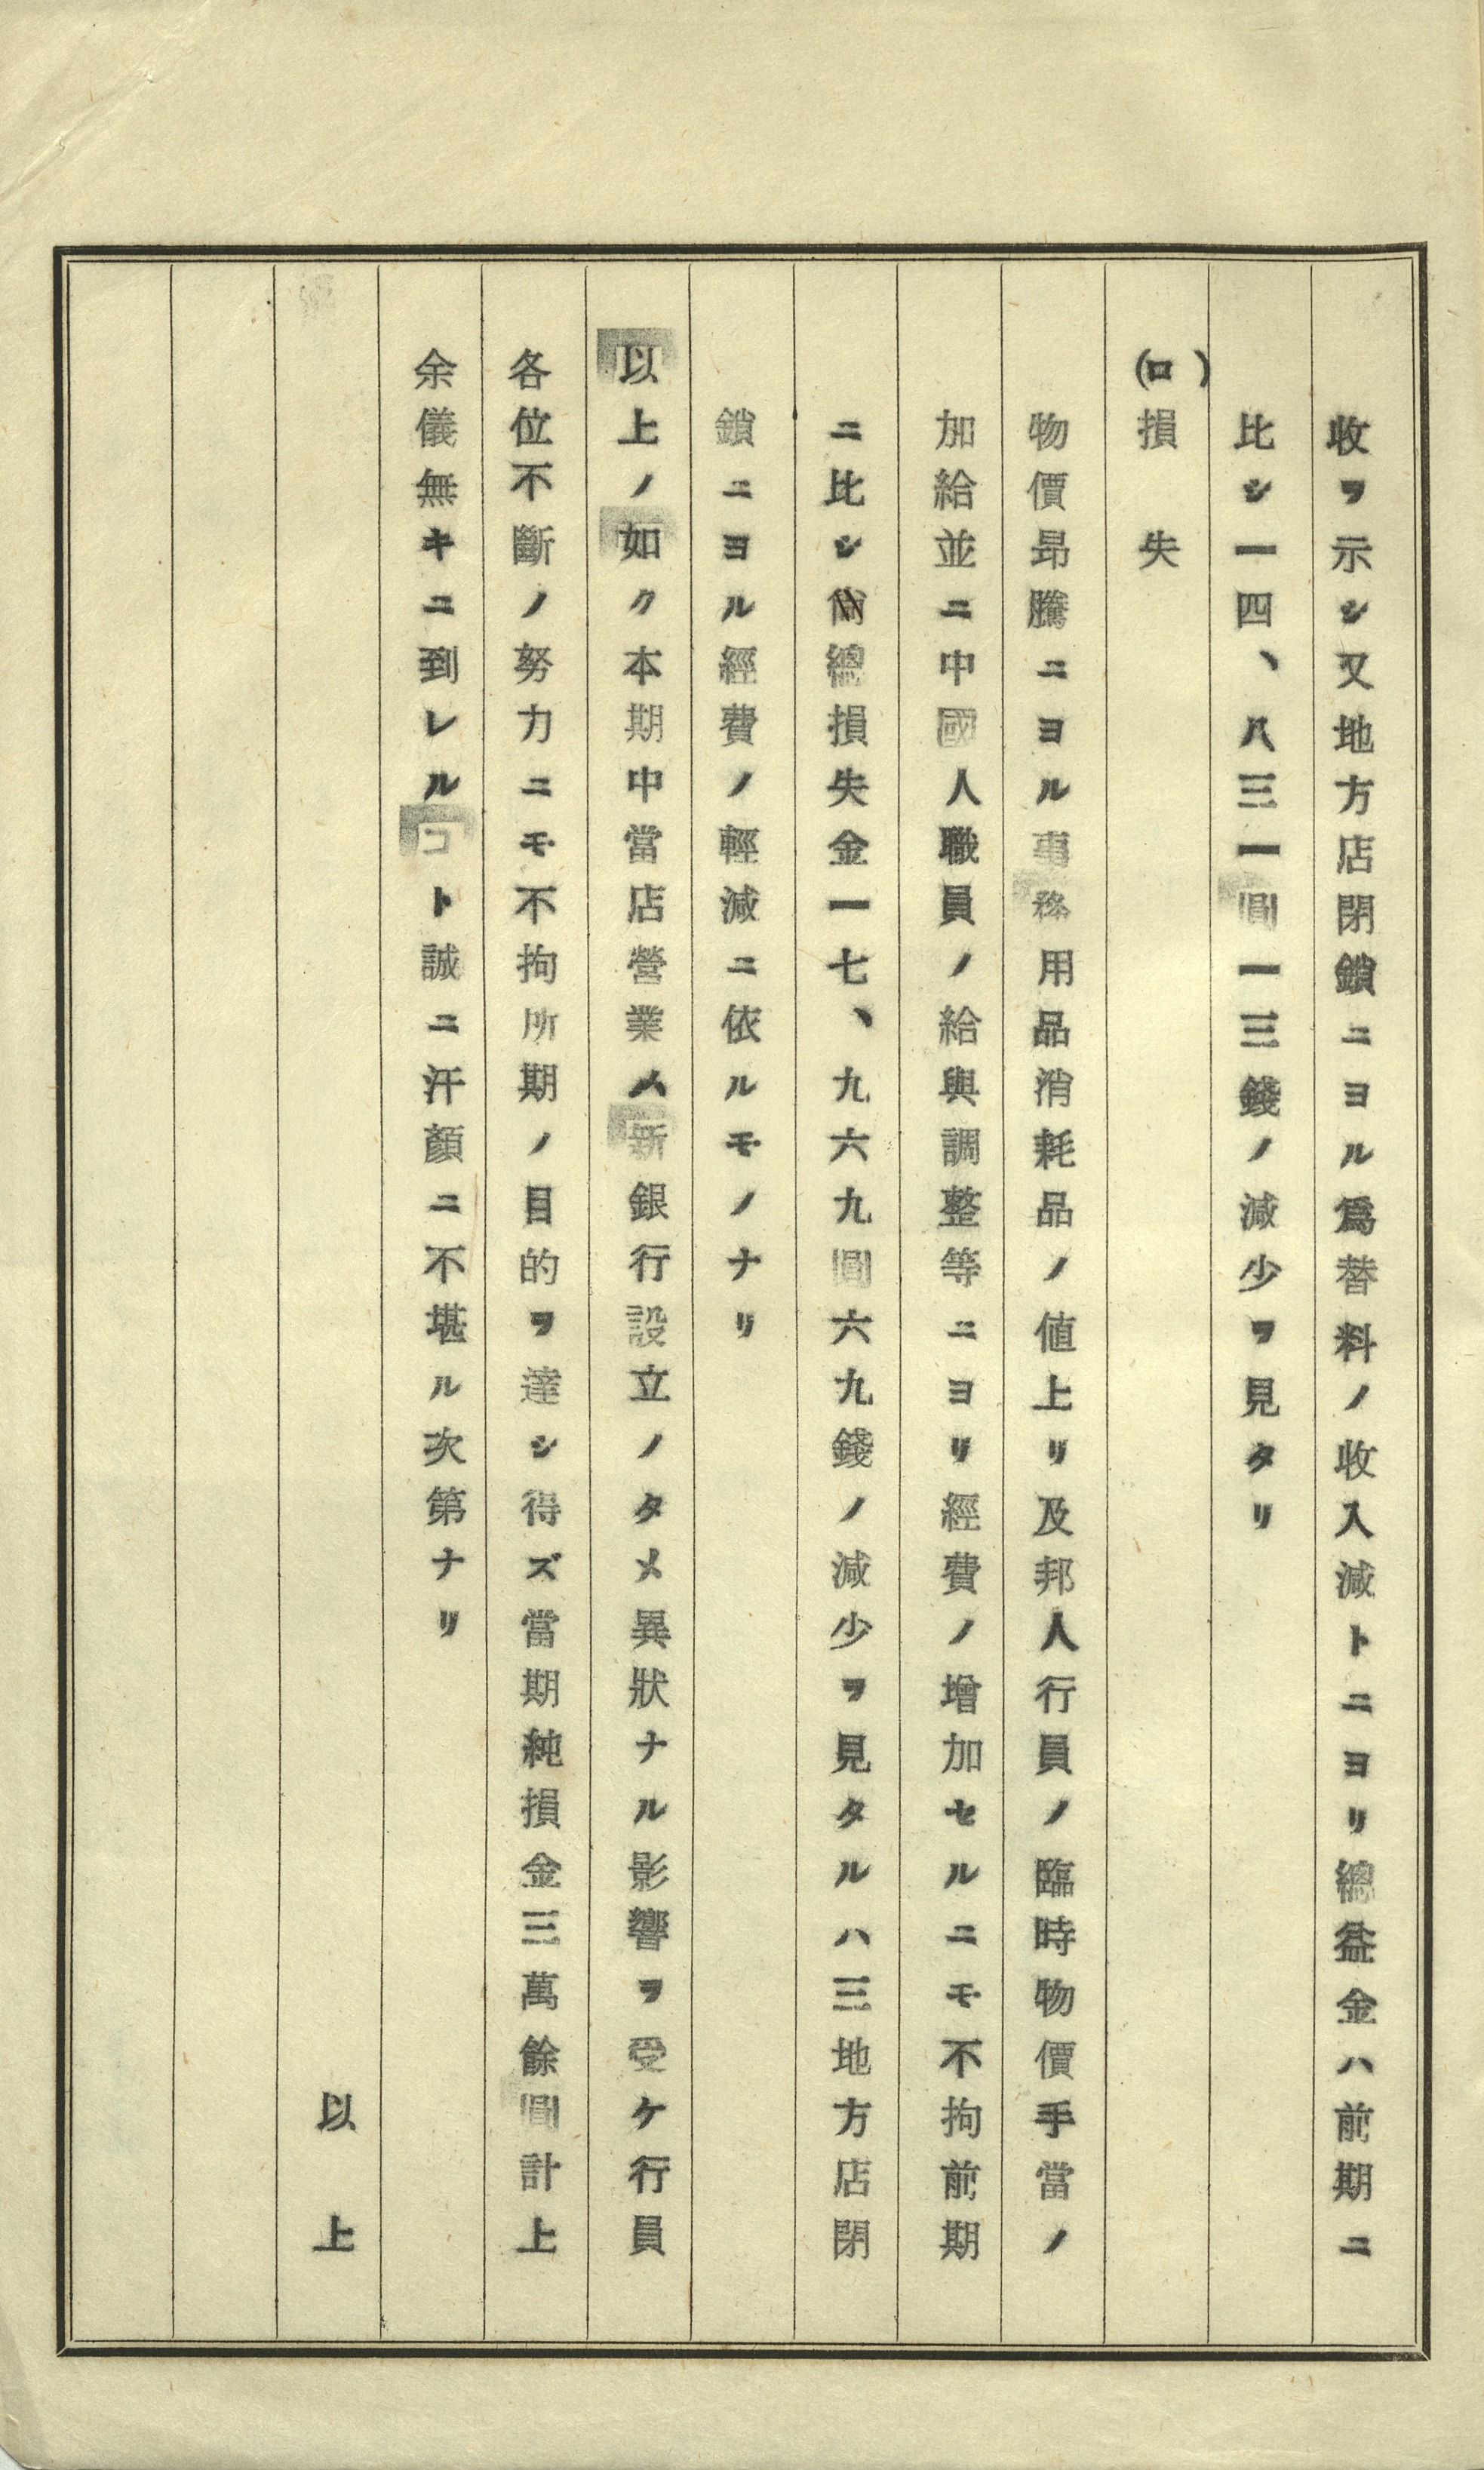 收ヲ示シ又地方店閉鎖ニヨル爲替料ノ收入減トニヨリ總益金ハ前期ニ
比シ一四、八三一圓一三錢ノ減少ヲ見タリ
(ロ)損　失
物價昂騰ニヨル事務用品消耗品ノ値上リ及邦人行員ノ臨時物價手當ノ
加給並ニ中國人職員ノ給與調整等ニヨリ經費ノ增加セルニモ不拘前期
ニ比シ尙總損失金一七、九六九圓六九錢ノ減少ヲ見タルハ三地方店閉
鎖ニヨル經費ノ輕減ニ依ルモノナリ
以上ノ如ク本期中當店營業ハ新銀行設立ノタメ異狀ナル影響ヲ受ケ行員
各位不斷ノ努力ニモ不拘所期ノ目的ヲ達シ得ズ當期純損金三萬餘圓計上
余儀無キニ到レルコト誠ニ汗顏ニ不堪ル次第ナリ
以上